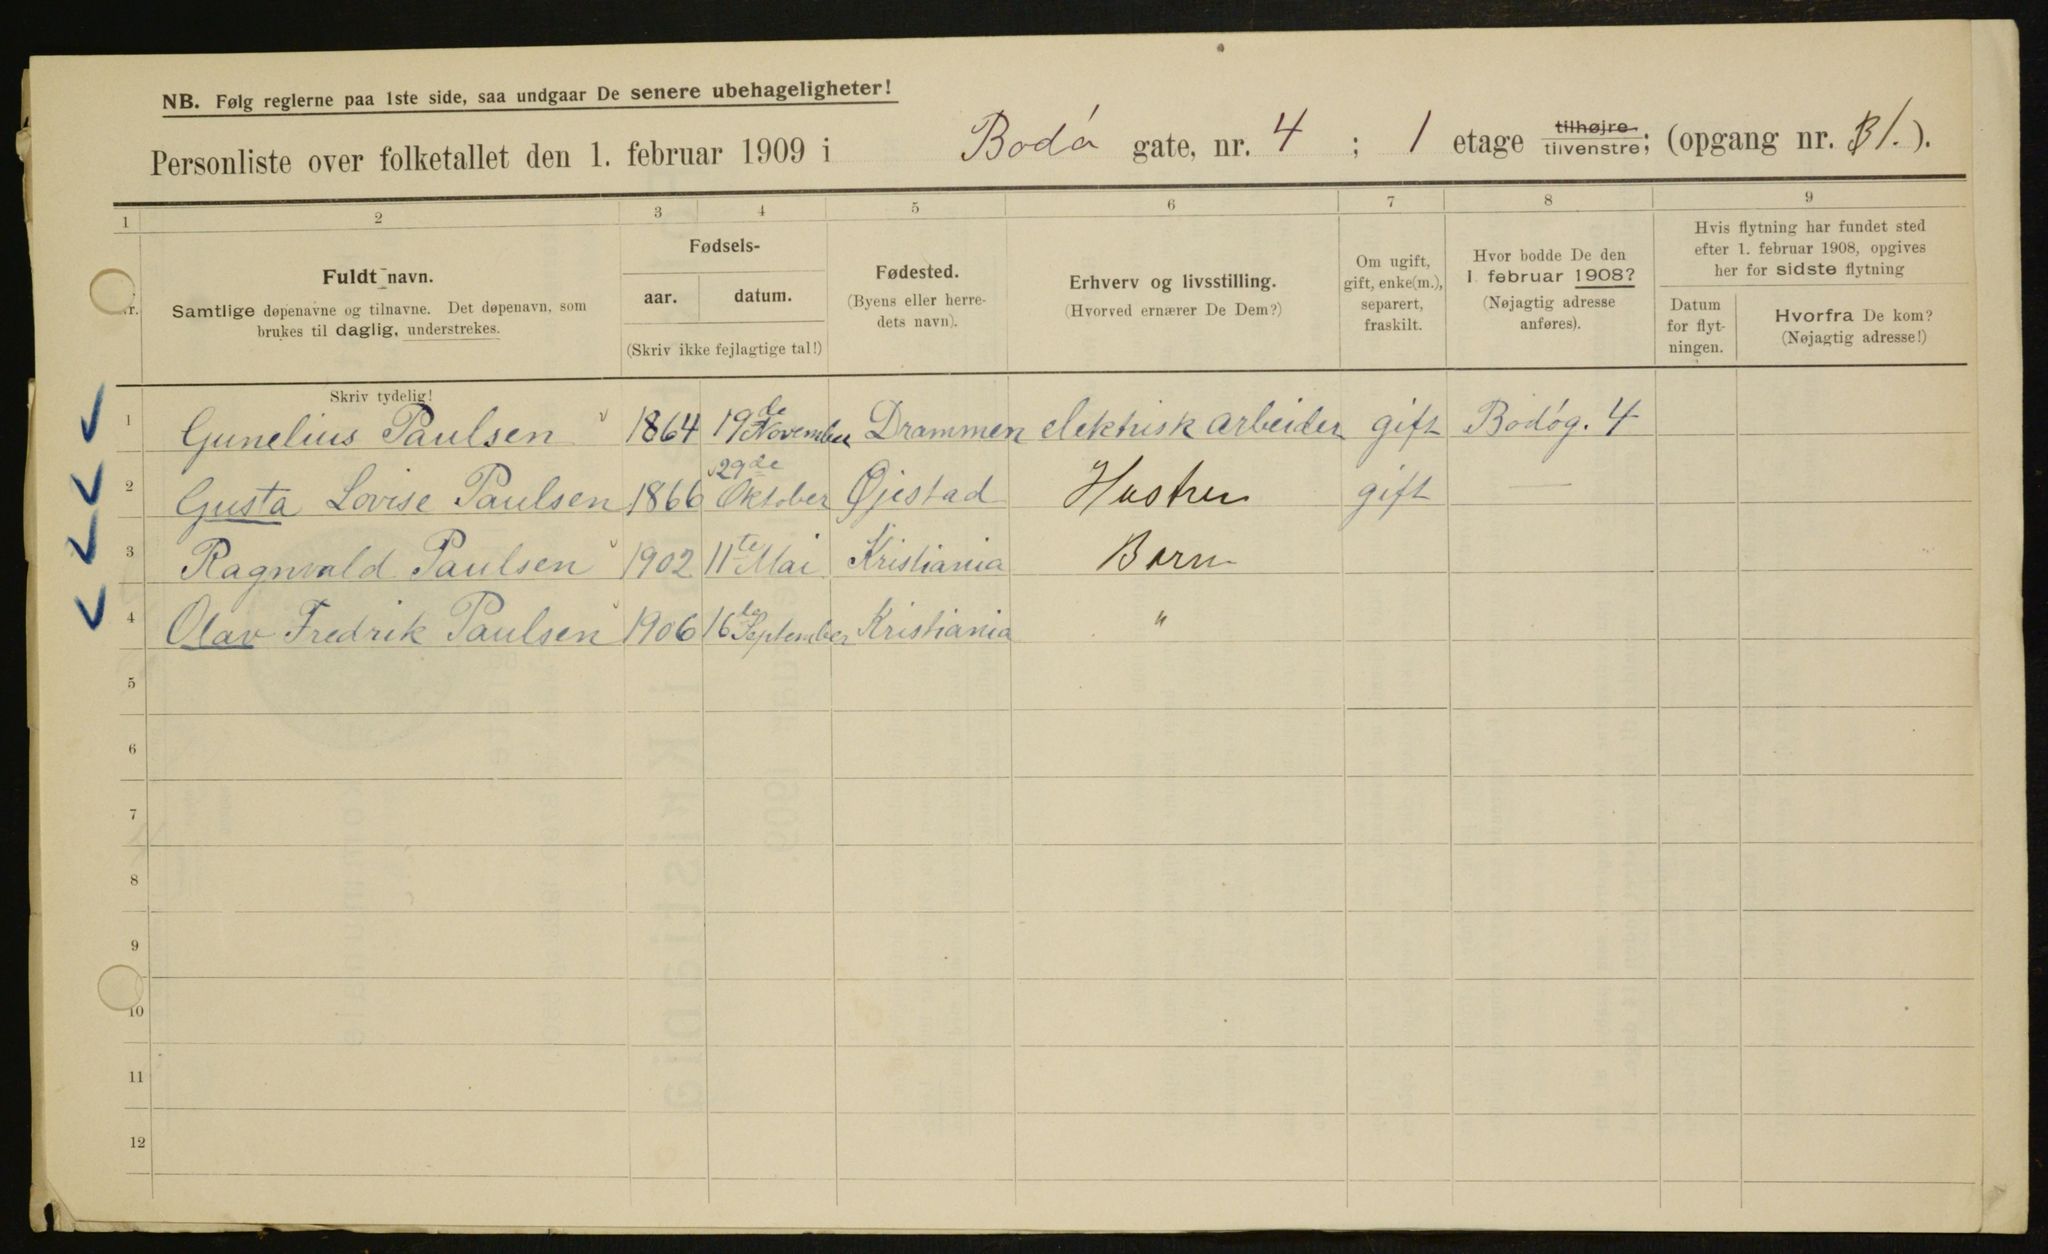 NB. Følg reglerne paa 1ste side, saa undgaar De senere ubehageligheter!
Personliste over folketallet den 1. februar 1909 i Bodó gate, nr. 4 ; 1 etage tilhøjre tilvenstre; (opgang nr. B1.).
1 2 3 4 5 6 7 8 9
Fuldt navn.
Samtlige døpenavne og tilnavne. Det døpenavn, som
brukes til daglig, understrekes.
Skriv tydelig!
Fødsels-
aar. datum.
(Skriv ikke fejlagtige tal!)
Fødested.
(Byens eller herre-
dets navn).
Erhverv og livsstilling.
(Hvorved ernærer De Dem?)
Om ugift,
gift, enke(m.),
separert,
fraskilt.
Hvor bodde De den
1 februar 1908?
(Nøjagtig adresse
anføres).
Hvis flytning har fundet sted
efter 1. februar 1908, opgives
her for sidste flytning
Datum
for flyt-
ningen.
Hvorfra De kom?
(Nøjagtig adresse!)
1 Gunelius Paulsen 1864 19de November Drammen elektrisk arbeider gift Bodóg. 4
2 Gusta Lovise Paulsen 1866 29de Oktober Øjestad Hustru gift —
3 Ragnvald Paulsen 1902 11te Mai Kristiania Barn
4 Olav Fredrik Paulsen 1906 16de September Kristiania "
5
6
7
8
9
10
11
12